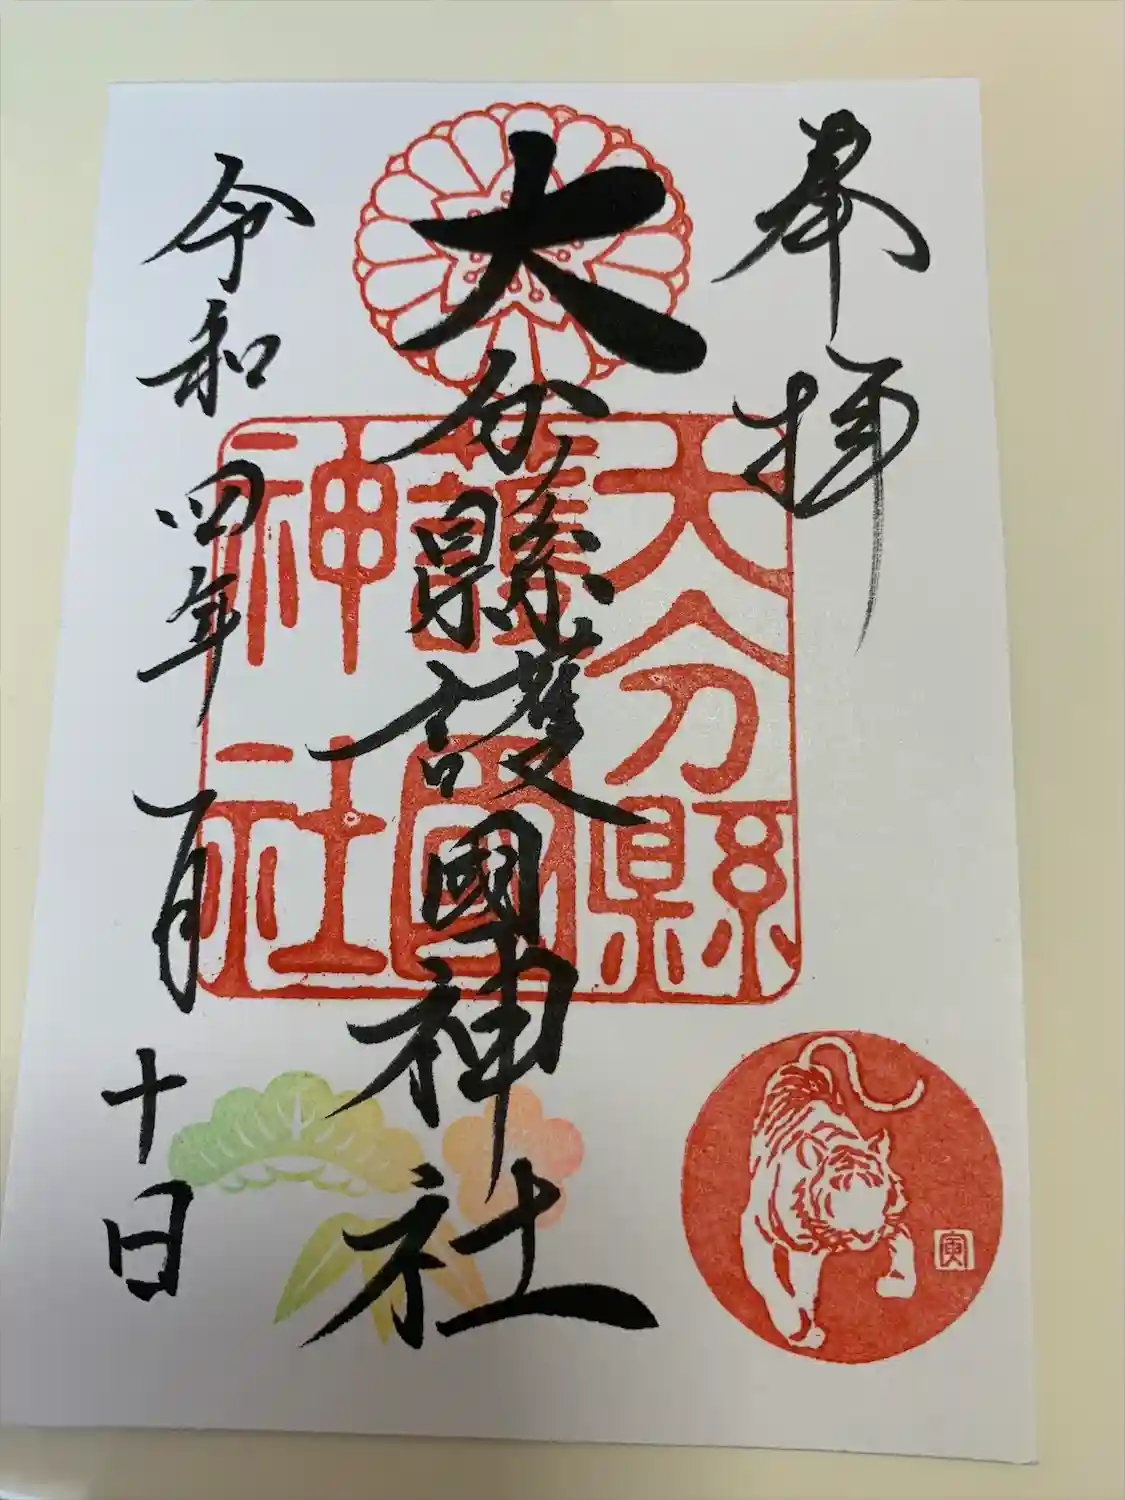 奉拝
大分縣護國神社
大分縣
護國
神社
令和四年一月十日
寅